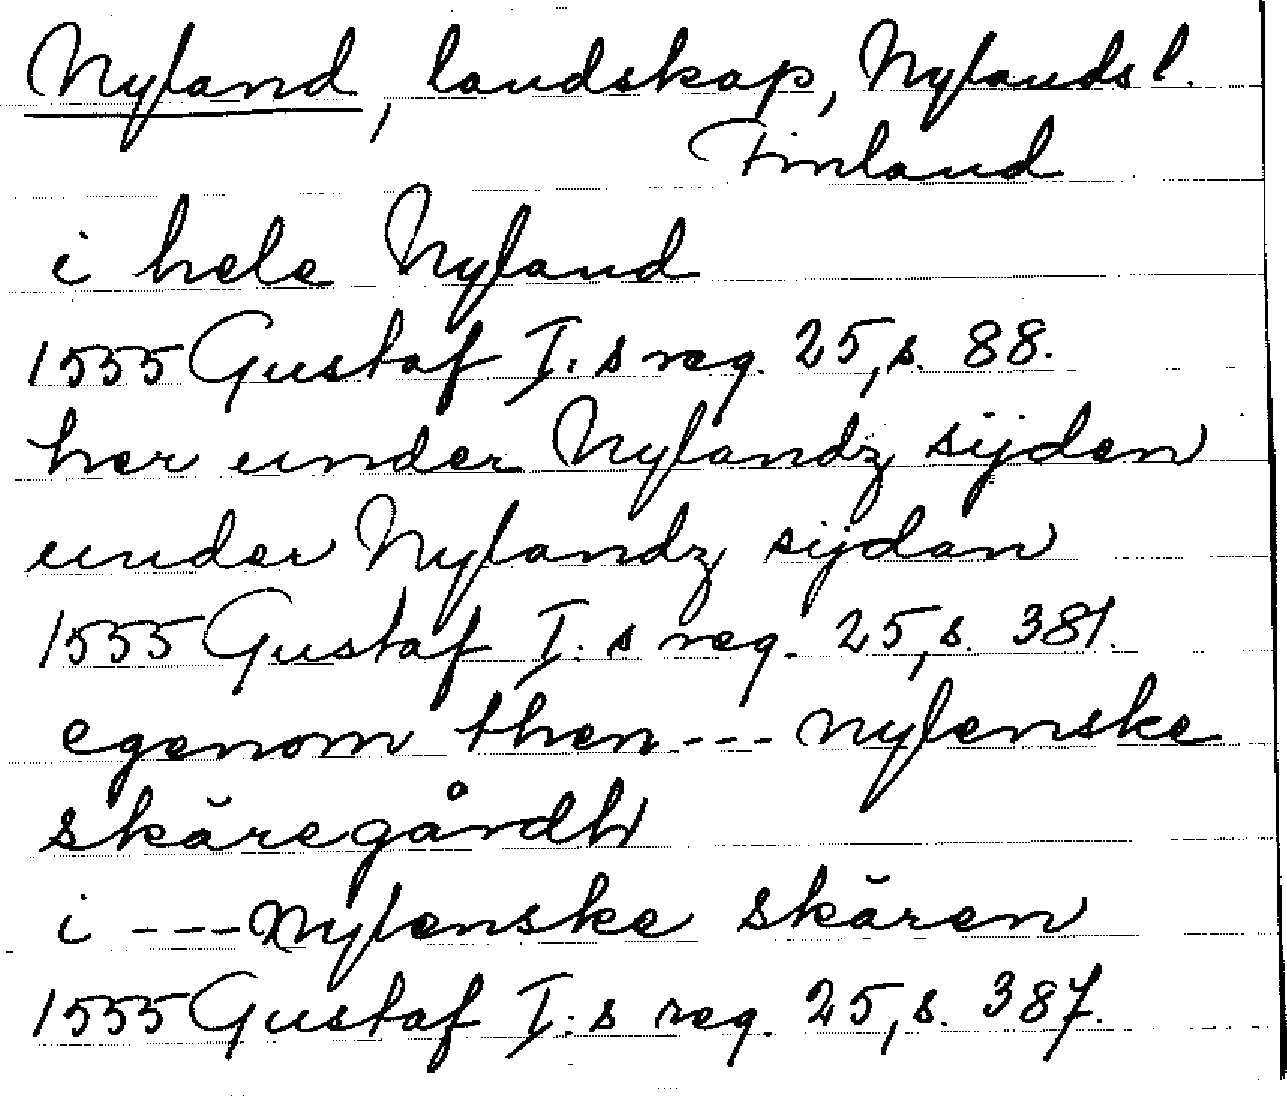 Nyland, landskap, Nylands l.
Finland
i hele Nyland
1555 Gustaf I:s reg. 25, s. 88.
her under Nylandz sijden
under Nylandz sijdan
1555 Gustaf I:s reg. 25, s. 381.
egenom then --- nylenske
skäregårdh
i --- Nylenske skären
1555 Gustaf I:s reg. 25, s. 387.